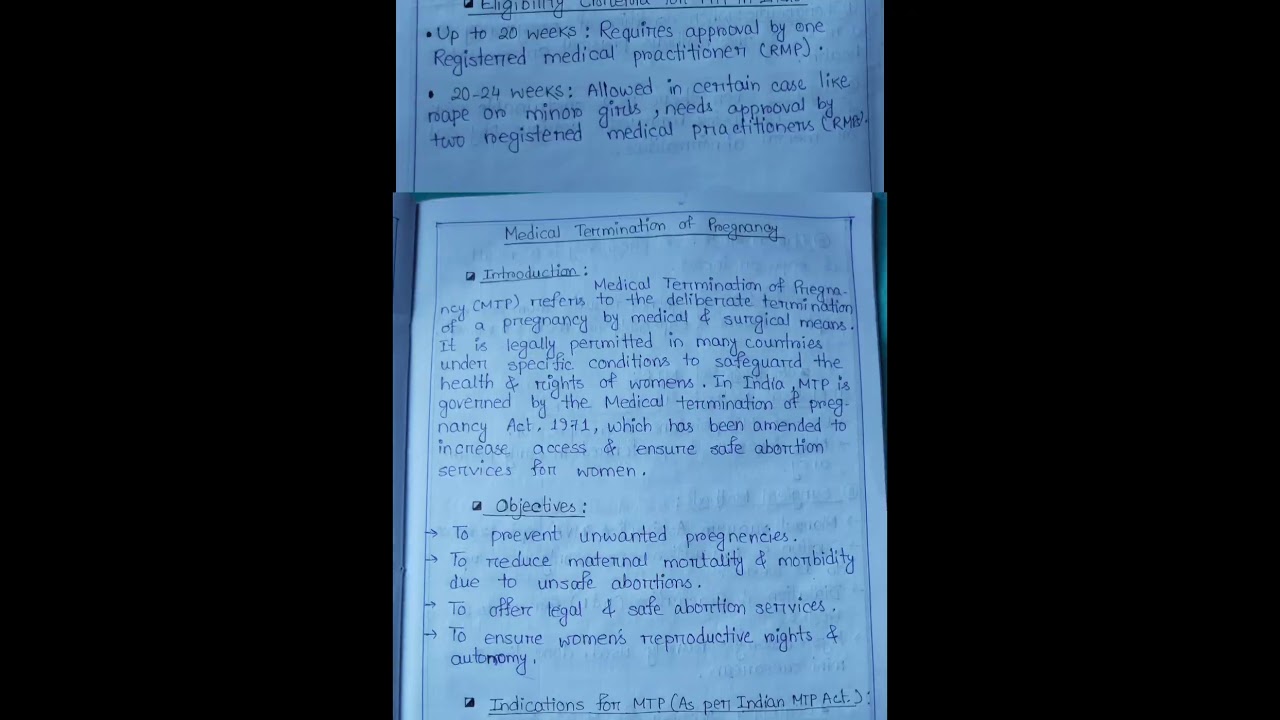 Eligibility Criteria for MTP in India
• Up to 20 weeks : Requires approval by one
Registered medical practitioner (RMP).
• 20-24 weeks : Allowed in certain case like
rape or minor girls, needs approval by
two registered medical practitioners (RMPs).
Medical Termination of Pregnancy
Introduction :
Medical Termination of Pregna-
ncy (MTP) refers to the deliberate termination
of a pregnancy by medical & surgical means.
It is legally permitted in many countries
under specific conditions to safeguard the
health & rights of womens. In India, MTP is
governed by the Medical termination of preg-
nancy Act, 1971, which has been amended to
increase access & ensure safe abortion
services for women.
Objectives :
→ To prevent unwanted pregnencies.
→ To reduce maternal mortality & morbidity
due to unsafe abortions.
→ To offer legal & safe abortion services.
→ To ensure women's reproductive rights &
autonomy.
Indications for MTP (As per Indian MTP Act.) :